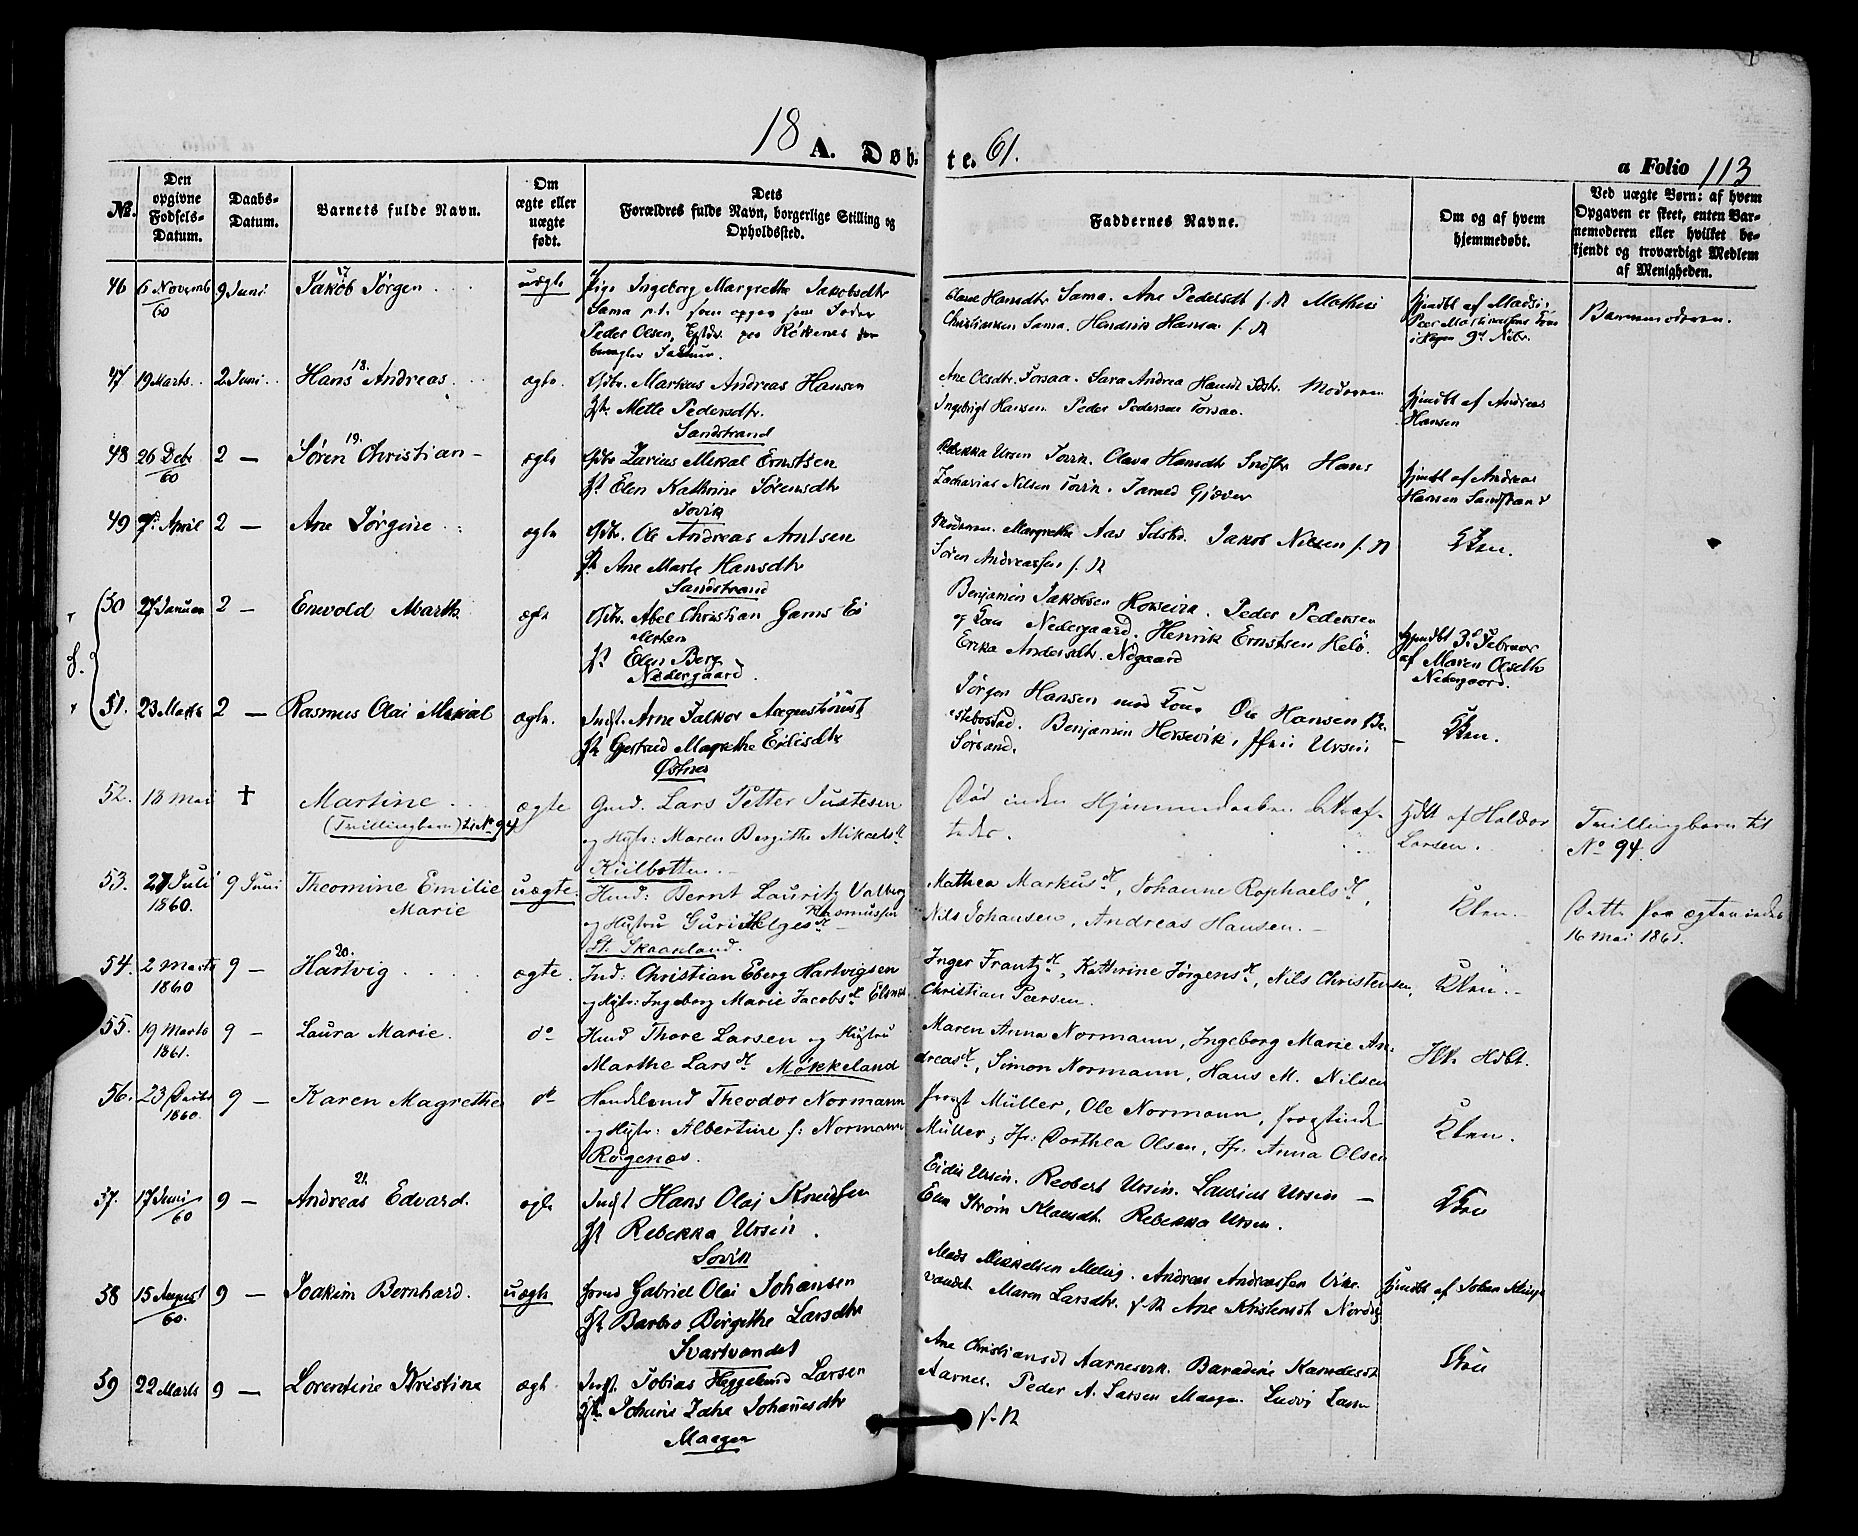 18 A. Døb-
te. 61.
a Folio 113
No. Den opgivne Fødsels-Datum. Daabs-Datum. Barnets fulde Navn. Om ægte eller uægte født. Dets Forældres fulde Navn, borgerlige Stilling og Opholdssted. Faddernes Navne. Om og af hvem hjemmedøbt. Ved uægte Børn: af hvem Opgaven er skeet, enten Barnemoderen eller hvilket bekjendt og troværdigt Medlem af Menigheden.
46 6 Novemb 60 9 Juni 17 Jakob Jørgen uægte
Pige Ingeborg Margrethe Jakobsdtr
Sama p.t. som opgav som Fader
Peder Olsen, pea Røkenes
Hansdtr Sama. Ane Pedersdt f. A Mathis
Christiansen Sama. Hendrik Hansa f. A
Hjmdbt af Madsi
9d Nvbr.
Barnemoderen.
47 19 Marts 2 Juni 18. Hans Andreas. ægte.
Gbr. Markus Andreas Hansen
Hst. Mette Pedersdtr.
Sandstrand
Ane Olsdtr. Forsaa. Sara Andrea Hansdt Sdstr. Moderen
Ingebrigt Hansen. Peder Pedersen Forsaa.
Hjmdbt af Andreas
Hansen
48 26 Debr 60 2 — 19. Søren Christian — ægte
Gbr Zarias Mikal Ernstsen
Hst Elen Kathrine Sørensdtr
Sovik
Rebekka Ursin Sovik. Olava Hansdtr Hans
Zacharias Nilsen Sovik. Jamed Gjæver
Hjmdbt af Andreas
Hansen Sandstrand
49 7 April 2 — Ane Jørgine ægte
Gbr. Ole Andreas Arntsen
Hst Ane Marte Hansdtr
Sandstrand
Moderen. Margrethe Aas Sdstrd. Jakob Nilsen f. A
Søren Andreassen f. A
Kken.
50 27 Januar 2 — Enevold Marth. ægte
Gbr. Abel Christian Gams Ei
lertsen
Hst Elen Berg
Nedergaard.
Benjamin Jakobsen Horsevik. Peder Pedersen
og Kone Nedergaard. Henrik Ernstsen Kelø.
Erika Andersdtr. Ndgaard
Hjmdbt 3. Februar
af Maren Olsdtr
Nedergaard.
51. 23 Marts 2 — Rasmus Olai Mikal ægte.
Indst. Arne Falkor Augustinus
Hst Gjertrud Magrethe Eilisdtr
Østnes
Jørgen Hansen med Kone Ole Hansen Be
stebostad. Benjamin Horsevik, Ursin
Sørsand.
Kken.
52. 18 Mai † Martine ægte
(Tvillingbarn) til No 94.
Gmd. Lars Petter Justesen
og Hustr: Maren Bergithe Mikaelsdt
Kiilbotten.
Død inden Hjemmedaaben bekræf-
tedes.
Hdbt af Haldor
Larsen.
Tvillingbarn til
No 94.
53. 27 Juli 1860. 9 Juni Theomine Emilie uægte.
Marie
Hmd: Bernt Lauritz Valberg
Rasmussen
og Hustru Guri Helgesdt
St. Skaanland.
Mathea Markusdt, Johanne Raphaelsdt,
Nils Johansen, Andreas Hansen.
Kken.
Dette Par ægteviedes
16 Mai 1861.
54. 2 Marts 1860 9 — 20. Hartvig ægte.
Ind: Christian Eberg Hartvigsen
og Hustr: Ingeborg Marie Jacobsdt Elsnes
Inger Frantzdt, Kathrine Jørgensdt, Nils Christensen,
Christian Peersen.
Kken.
55. 19 Marts 1861. 9 — Laura Marie. do
Hmd Thore Larsen og Hustru
Marthe Larsdt Møkkeland
Maren Anna Normann, Ingeborg Marie An-
dreasdt, Simon Normann, Hans M. Nilsen
Ikk. Hdbt.
56. 23 Decbr 1860. 9 — Karen Magrethe do
Handelsmd Theodor Normann
og Hustr: Albertine f: Normann
Røgenæs.
Provst Müller, Ole Normann, Provstinde
Müller, Jfr: Dorthea Olsen, Jfr. Anna Olsen
Kken.
57. 17 Juni 60 9 — 21. Andreas Edvard. ægte
Indst Hans Olai Knudsen
Hst Rebekka Ursin.
Sovik
Eidis Ursin. Reobert Ursin. Laurius Ursin —
Elen Strøm Klausdt. Rebekka Ursin.
Kken
58 15 August 60. 9 — Joakim Bernhard. uægte
Gmd Gabriel Olai Johansen
Hst Barbro Birgithe Larsdtr
Svartvandet
Mads Mikkelsen Melvig. Andreas Andreassen Vike
vandet Maren Larsdtr. f. A Ane Kristensdt Nordvig
Hjmdbt af Johan Klings
59 22 Marts 9 — Lorentine Kristine ægt.
Indst. Tobias Heggelund Larsen
Hst. Johanne Zahe Johannesdtr
Maagen
Ane Christiansdt Aarnesvik. Beradine Kanudesdt
Aarnes. Peder A. Larsen Maagen. Ludvig Larsen
f. A
Kken